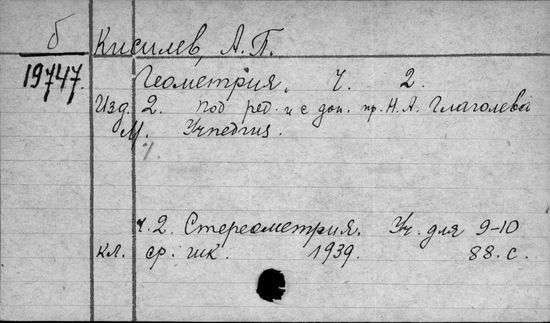 б Кисилев, А.П.
19747. Геометрия. Ч. 2.
Изд. 2. под ред. и с доп. пр. Н.А. Глаголева
М. Учпедгиз.
ч.2. Стереометрия. Уч. для 9-10
кл. ср. шк. 1939. 88. с.